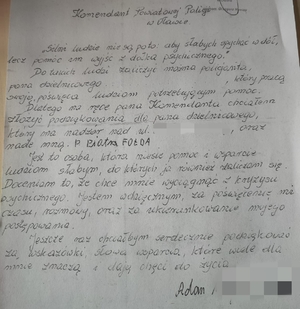 Komendant Powiatowy Policji
w Oławie
"Silni ludzie nie są po to, aby słabych spychać w dół,
lecz pomóc im wyjść z dołka psychicznego."
Do takich ludzi zaliczyć można policjanta,
pana dzielnicowego, który pracą
swoją poświęca ludziom potrzebującym pomoc.
Dlatego na ręce pana Komendanta chciałbym
złożyć podziękowania dla pana dzielnicowego,
który ma nadzór nad ul. oraz
nade mną. P. Piotra FOŁDA
Jest to osoba, która niesie pomoc i wsparcie
ludziom słabym, do których ja również zaliczam się.
Doceniam to, że chce mnie wyciągnąć z kryzysu
psychicznego. Jestem wdzięczny, za poświęcenie mi
czasu, rozmowy, oraz za ukierunkowanie mojego
postępowania.
Jeszcze raz chciałbym serdecznie podziękować
za wskazówki, słowa wsparcia, które wiele dla
mnie znaczą i dają chęci do życia.
Adam